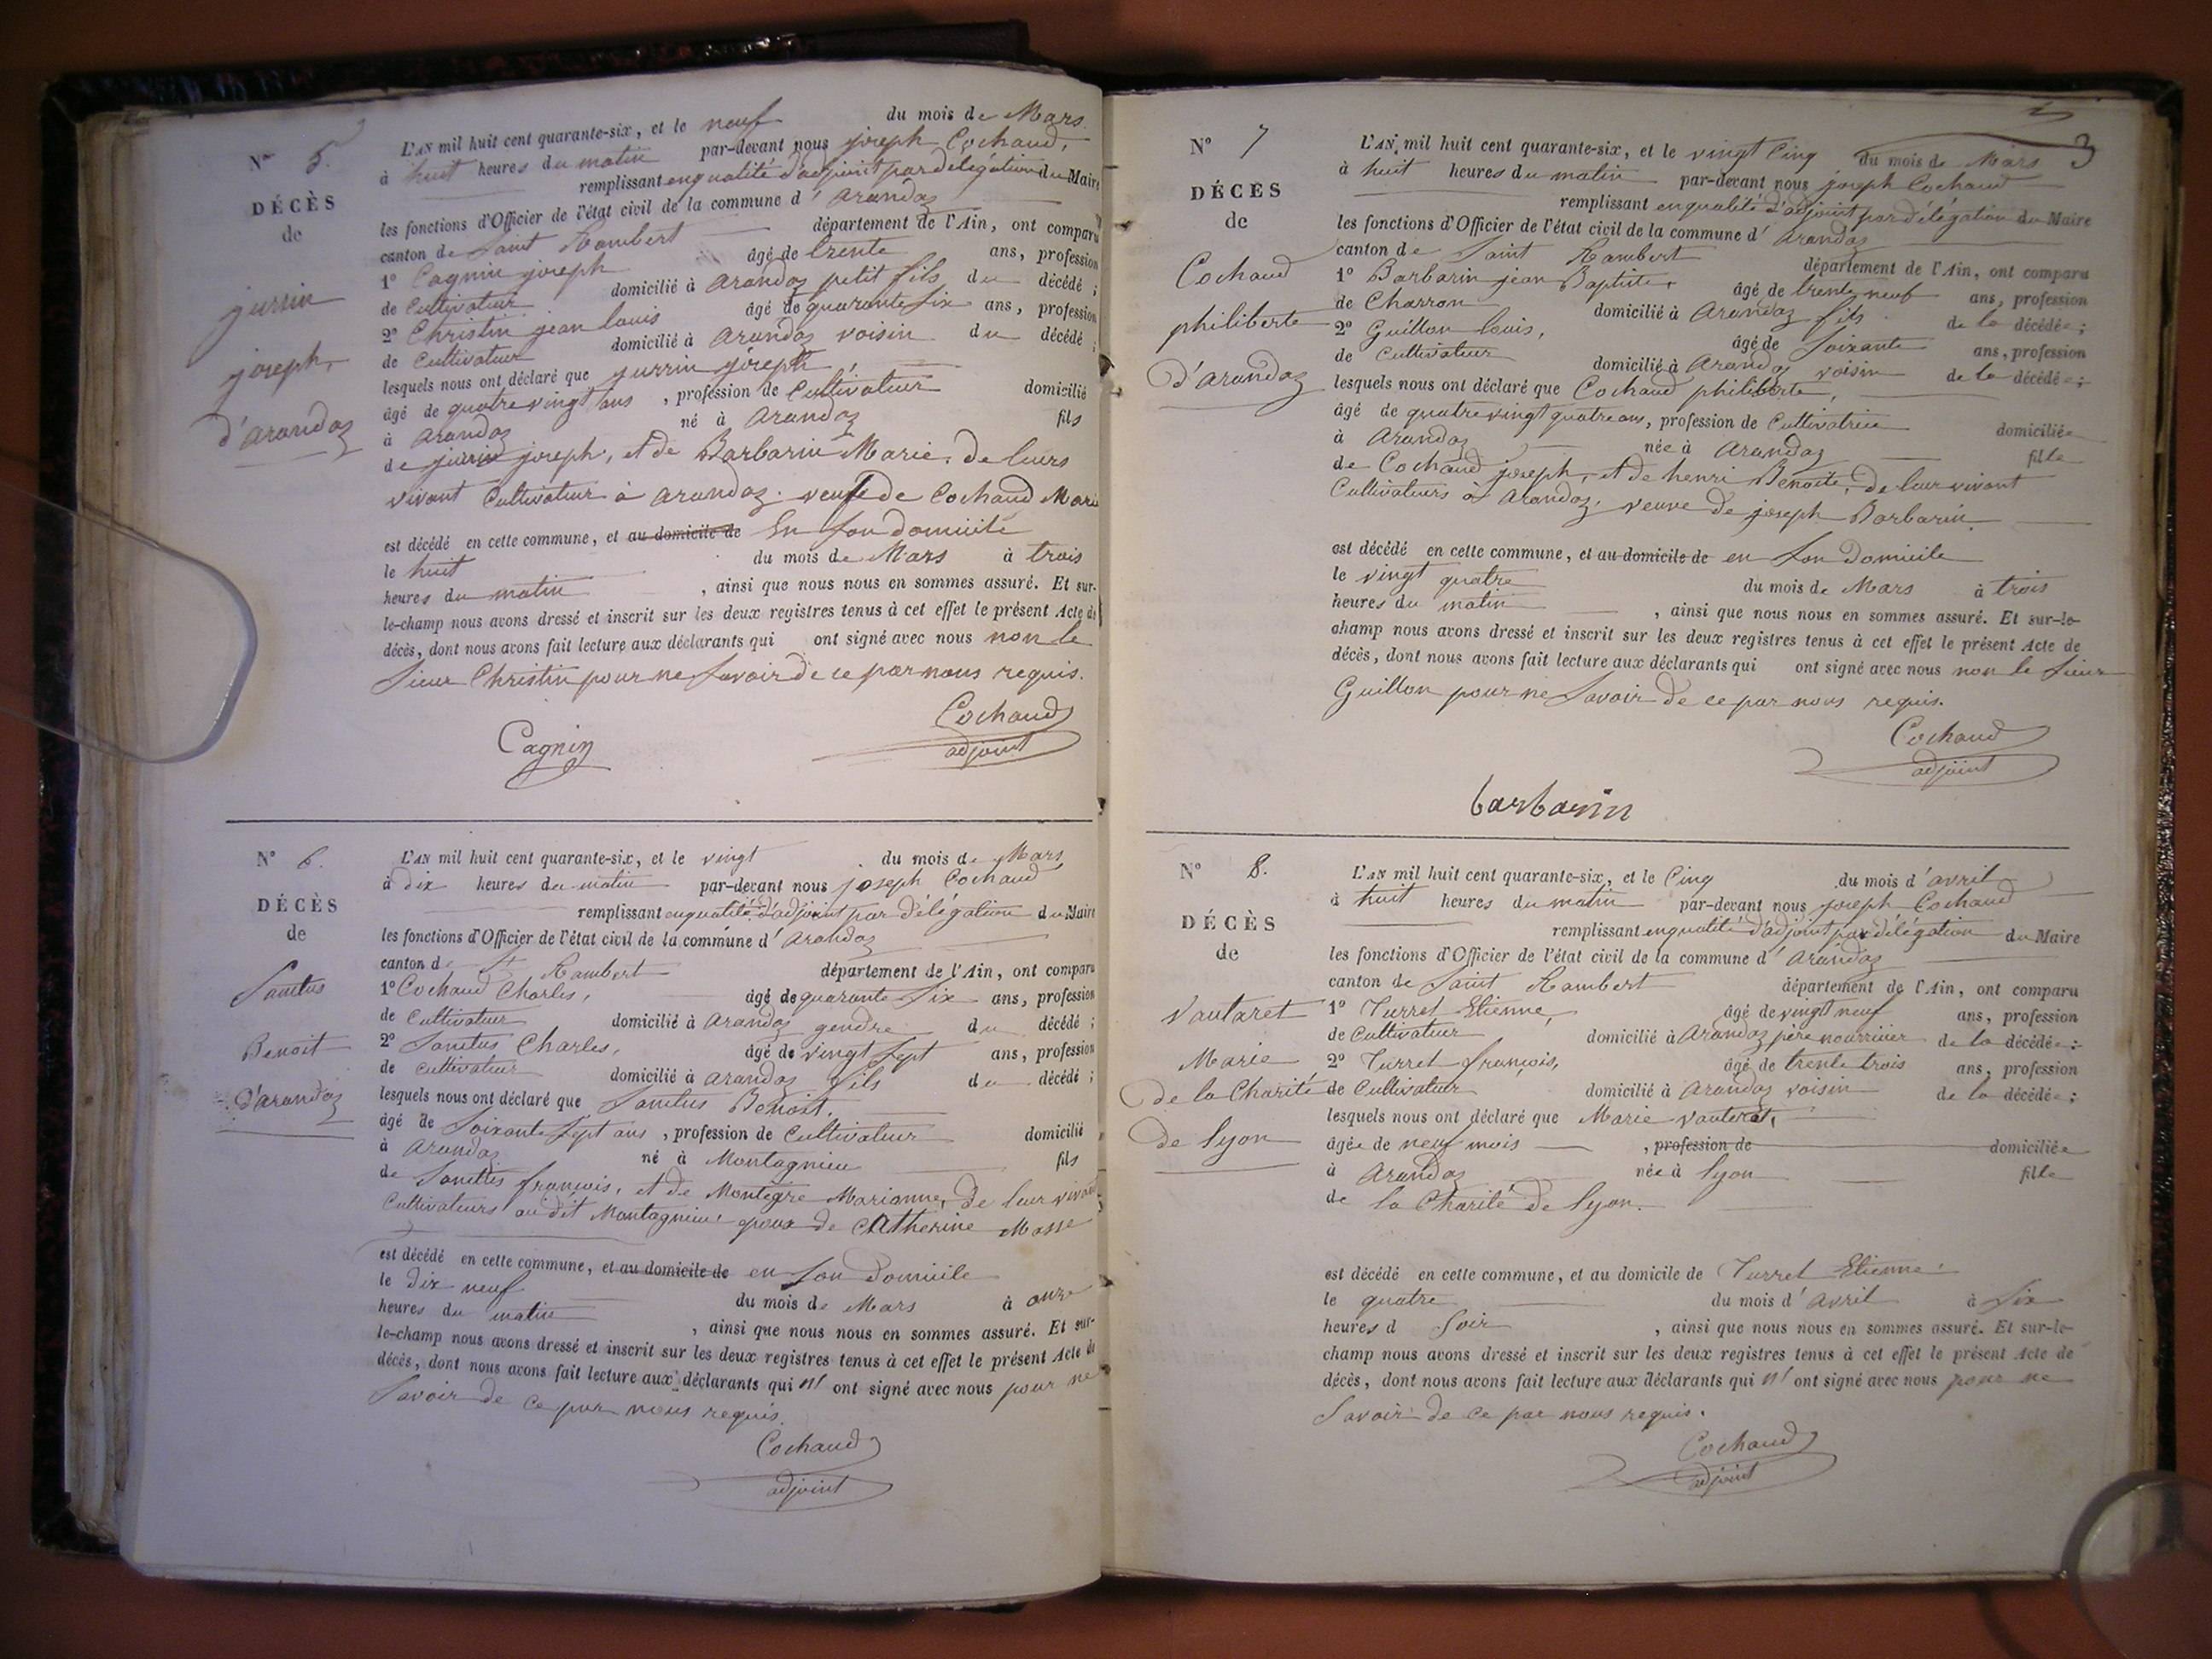 N° 5.
DÉCÈS
de
jurrin
joseph,
d'arandaz
L'AN mil huit cent quarante-six, et le neuf du mois de Mars
à huit heures du matin par-devant nous joseph Cochaud,
remplissant en qualité d'adjoint par délégation du Maire
les fonctions d'Officier de l'état civil de la commune d'arandaz
canton de Saint Rambert département de l'Ain, ont comparu
1° Cagnin joseph âgé de trente ans, profession
de Cultivateur domicilié à arandaz petit fils du décédé ;
2° Christin jean louis âgé de quarante six ans, profession
de Cultivateur domicilié à arandaz voisin du décédé ;
lesquels nous ont déclaré que jurrin joseph,
âgé de quatre vingt ans , profession de Cultivateur domicilié
à arandaz né à arandaz fils
de jurrin joseph, et de Barbarin Marie, de leurs
vivant Cultivateur à arandaz. veuf de Cochaud Marie
est décédé en cette commune, et au domicile de En son domicile
le huit du mois de Mars à trois
heures du matin , ainsi que nous nous en sommes assuré. Et sur-
le-champ nous avons dressé et inscrit sur les deux registres tenus à cet effet le présent Acte de
décès, dont nous avons fait lecture aux déclarants qui ont signé avec nous non le
Sieur Christin pour ne savoir de ce par nous requis.
Cochaud
Cagnin adjoint
N° 6.
DÉCÈS
de
Sanitus
Benoit
d'arandaz
L'AN mil huit cent quarante-six, et le vingt du mois de Mars
à dix heures du matin par-devant nous joseph Cochaud
remplissant en qualité d'adjoint par délégation du Maire
les fonctions d'Officier de l'état civil de la commune d'arandaz
canton de St Rambert département de l'Ain, ont comparu
1° Cochaud Charles, âgé de quarante six ans, profession
de Cultivateur domicilié à arandaz gendre du décédé ;
2° Sanitus Charles, âgé de vingt sept ans, profession
de Cultivateur domicilié à arandaz fils du décédé ;
lesquels nous ont déclaré que Sanitus Benoit,
âgé de Soixante sept ans , profession de Cultivateur domicilié
à arandaz né à Montagnieu fils
de Sanitus françois, et de Montégre Marianne, de leur vivant
Cultivateurs au dit Montagnieu époux de Catherine Masse
est décédé en cette commune, et au domicile de en son domicile
le dix neuf du mois de Mars à onze
heures du matin , ainsi que nous nous en sommes assuré. Et sur-
le-champ nous avons dressé et inscrit sur les deux registres tenus à cet effet le présent Acte de
décès, dont nous avons fait lecture aux déclarants qui n' ont signé avec nous pour ne
Savoir de ce par nous requis.
Cochaud
adjoint
3
N° 7
DÉCÈS
de
Cochaud
philiberte
d'arandaz
L'AN mil huit cent quarante-six, et le vingt Cinq du mois de Mars
à huit heures du matin par-devant nous joseph Cochaud
remplissant en qualité d'adjoint par délégation du Maire
les fonctions d'Officier de l'état civil de la commune d'arandaz
canton de Saint Rambert département de l'Ain, ont comparu
1° Barbarin jean Baptiste, âgé de trente neuf ans, profession
de Charron domicilié à arandaz fils de la décédée ;
2° Guillon louis, âgé de Soixante ans, profession
de Cultivateur domicilié à arandaz voisin de la décédée ;
lesquels nous ont déclaré que Cochaud philiberte,
âgé de quatre vingt quatre ans, profession de Cultivatrice domiciliée
à arandaz née à arandaz fille
de Cochaud joseph, et de henri Benoite, de leur vivant
Cultivateurs à arandaz. veuve de joseph Barbarin.
est décédé en cette commune, et au domicile de en son domicile
le vingt quatre du mois de Mars à trois
heures du matin , ainsi que nous nous en sommes assuré. Et sur-le-
champ nous avons dressé et inscrit sur les deux registres tenus à cet effet le présent Acte de
décès, dont nous avons fait lecture aux déclarants qui ont signé avec nous non le Sieur
Guillon pour ne Savoir de ce par nous requis.
Cochaud
adjoint
barbarin
N° 8.
DÉCÈS
de
Vautaret
Marie
de la Charité
de lyon
L'AN mil huit cent quarante-six, et le Cinq du mois d'avril
à huit heures du matin par-devant nous joseph Cochaud
remplissant en qualité d'adjoint par délégation du Maire
les fonctions d'Officier de l'état civil de la commune d'arandaz
canton de Saint Rambert département de l'Ain, ont comparu
1° Turret Etienne, âgé de vingt neuf ans, profession
de Cultivateur domicilié à arandaz père nourricier de la décédée ;
2° Turret françois, âgé de trente trois ans, profession
de Cultivateur domicilié à arandaz voisin de la décédée ;
lesquels nous ont déclaré que Marie vauteret,
âgée de neuf mois , profession de domiciliée
à arandaz née à lyon fille
de la Charité de lyon.
est décédé en cette commune, et au domicile de Turret Etienne.
le quatre du mois d'avril à Six
heures d Soir , ainsi que nous nous en sommes assuré. Et sur-le-
champ nous avons dressé et inscrit sur les deux registres tenus à cet effet le présent Acte de
décès, dont nous avons fait lecture aux déclarants qui n' ont signé avec nous pour ne
Savoir de ce par nous requis.
Cochaud
adjoint